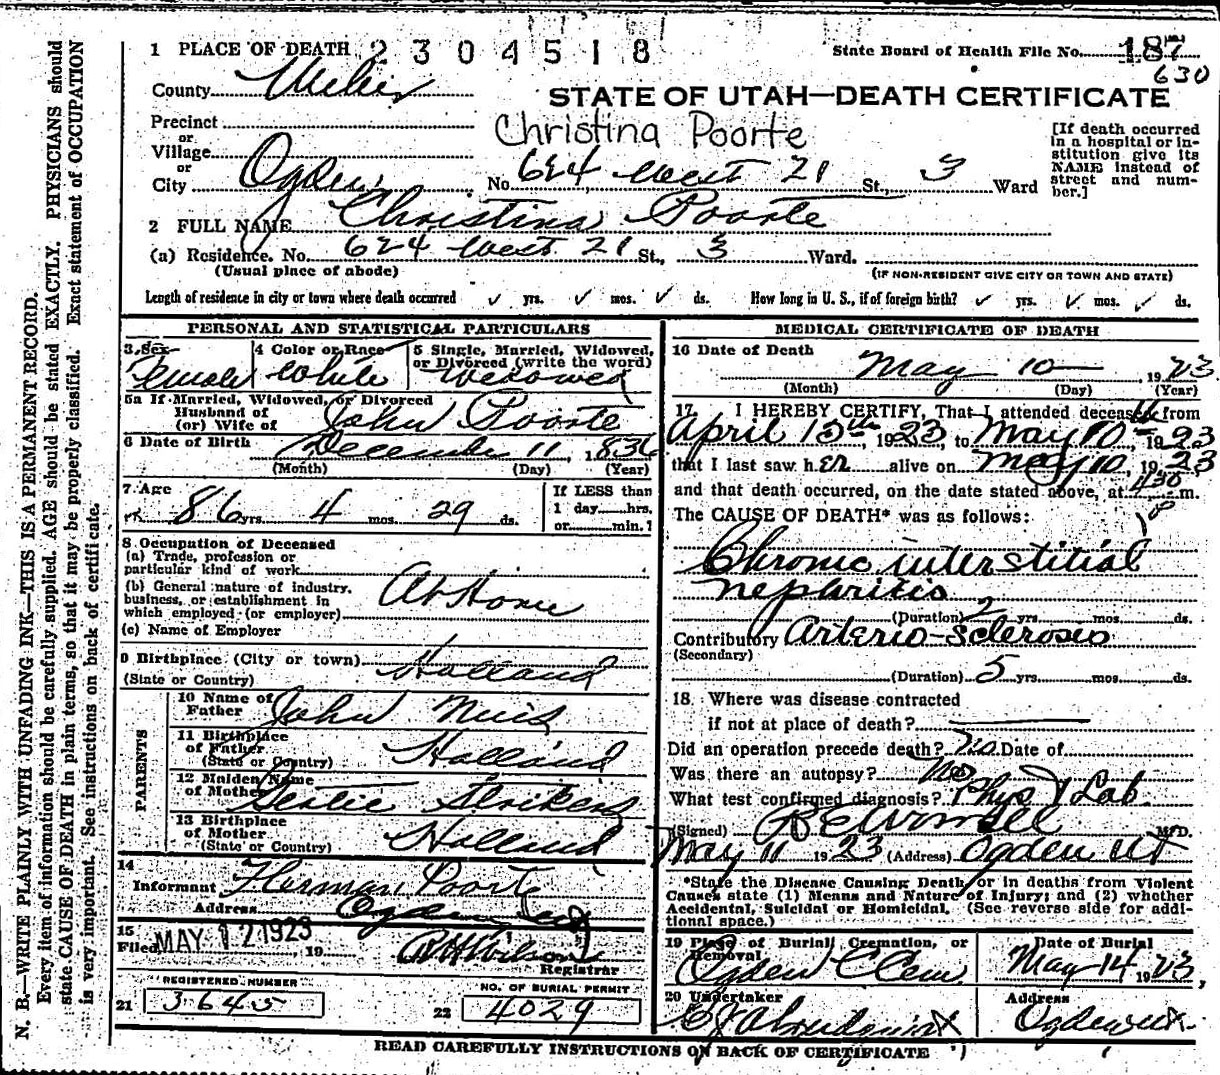 N. B.—WRITE PLAINLY WITH UNFADING INK—THIS IS A PERMANENT RECORD.
Every item of information should be carefully supplied. AGE should be stated EXACTLY. PHYSICIANS should
state CAUSE OF DEATH in plain terms, so that it may be properly classified. Exact statement of OCCUPATION
is very important. See instructions on back of certificate.
1 PLACE OF DEATH 2304518 State Board of Health File No. 187
630
County Weber
STATE OF UTAH—DEATH CERTIFICATE
Precinct
or
Village
or
Christina Poorte
[If death occurred
in a hospital or in-
stitution give its
NAME instead of
street and num-
ber.]
City Ogden No. 624 West 21 St., 3 Ward
2 FULL NAME Christina Poorte
(a) Residence. No. 624 West 21 St., 3 Ward.
(Usual place of abode) (IF NON-RESIDENT GIVE CITY OR TOWN AND STATE)
Length of residence in city or town where death occurred ✓ yrs. ✓ mos. ✓ ds. How long in U. S., if of foreign birth? ✓ yrs. ✓ mos. ✓ ds.
PERSONAL AND STATISTICAL PARTICULARS
3 Sex 4 Color or Race 5 Single, Married, Widowed,
or Divorced (write the word)
Female White Widowed
5a If Married, Widowed, or Divorced
Husband of
(or) Wife of John Poorte
6 Date of Birth December 11, 1836
(Month) (Day) (Year)
7 Age
86 yrs. 4 mos. 29 ds.
If LESS than
1 day hrs.
or min.?
8 Occupation of Deceased
(a) Trade, profession or
particular kind of work
(b) General nature of industry,
business, or establishment in
which employed (or employer) At Home
(c) Name of Employer
9 Birthplace (City or town)
(State or Country) Holland
PARENTS
10 Name of
Father John
11 Birthplace
of Father
(State or Country) Holland
12 Maiden Name
of Mother
13 Birthplace
of Mother
(State or Country) Holland
14
Informant Herman Poorte
Address Ogden Utah
15
Filed MAY 12 1923, 19
Registrar
REGISTERED NUMBER
21 3645
NO. OF BURIAL PERMIT
22 4029
MEDICAL CERTIFICATE OF DEATH
16 Date of Death
May 10, 1923
(Month) (Day) (Year)
17. I HEREBY CERTIFY, That I attended deceased from
April 15th, 1923, to May 10, 1923
that I last saw her alive on May 10, 1923
and that death occurred, on the date stated above, at 430 m.
The CAUSE OF DEATH* was as follows:
Chronic interstitial
nephritis
(Duration) 2 yrs. mos. ds.
Contributory Arterio-Sclerosis
(Secondary)
(Duration) 5 yrs. mos. ds.
18. Where was disease contracted
if not at place of death?
Did an operation precede death? No Date of
Was there an autopsy? No
What test confirmed diagnosis? Phys & Lab.
(Signed) M.D.
May 11 1923 (Address) Ogden UT
*State the Disease Causing Death, or in deaths from Violent
Causes state (1) Means and Nature of Injury; and (2) whether
Accidental, Suicidal or Homicidal. (See reverse side for addi-
tional space.)
19 Place of Burial, Cremation, or
Removal
Ogden C Cem.
Date of Burial
May 14 1923,
20 Undertaker
Address
Ogden Ut.
READ CAREFULLY INSTRUCTIONS ON BACK OF CERTIFICATE